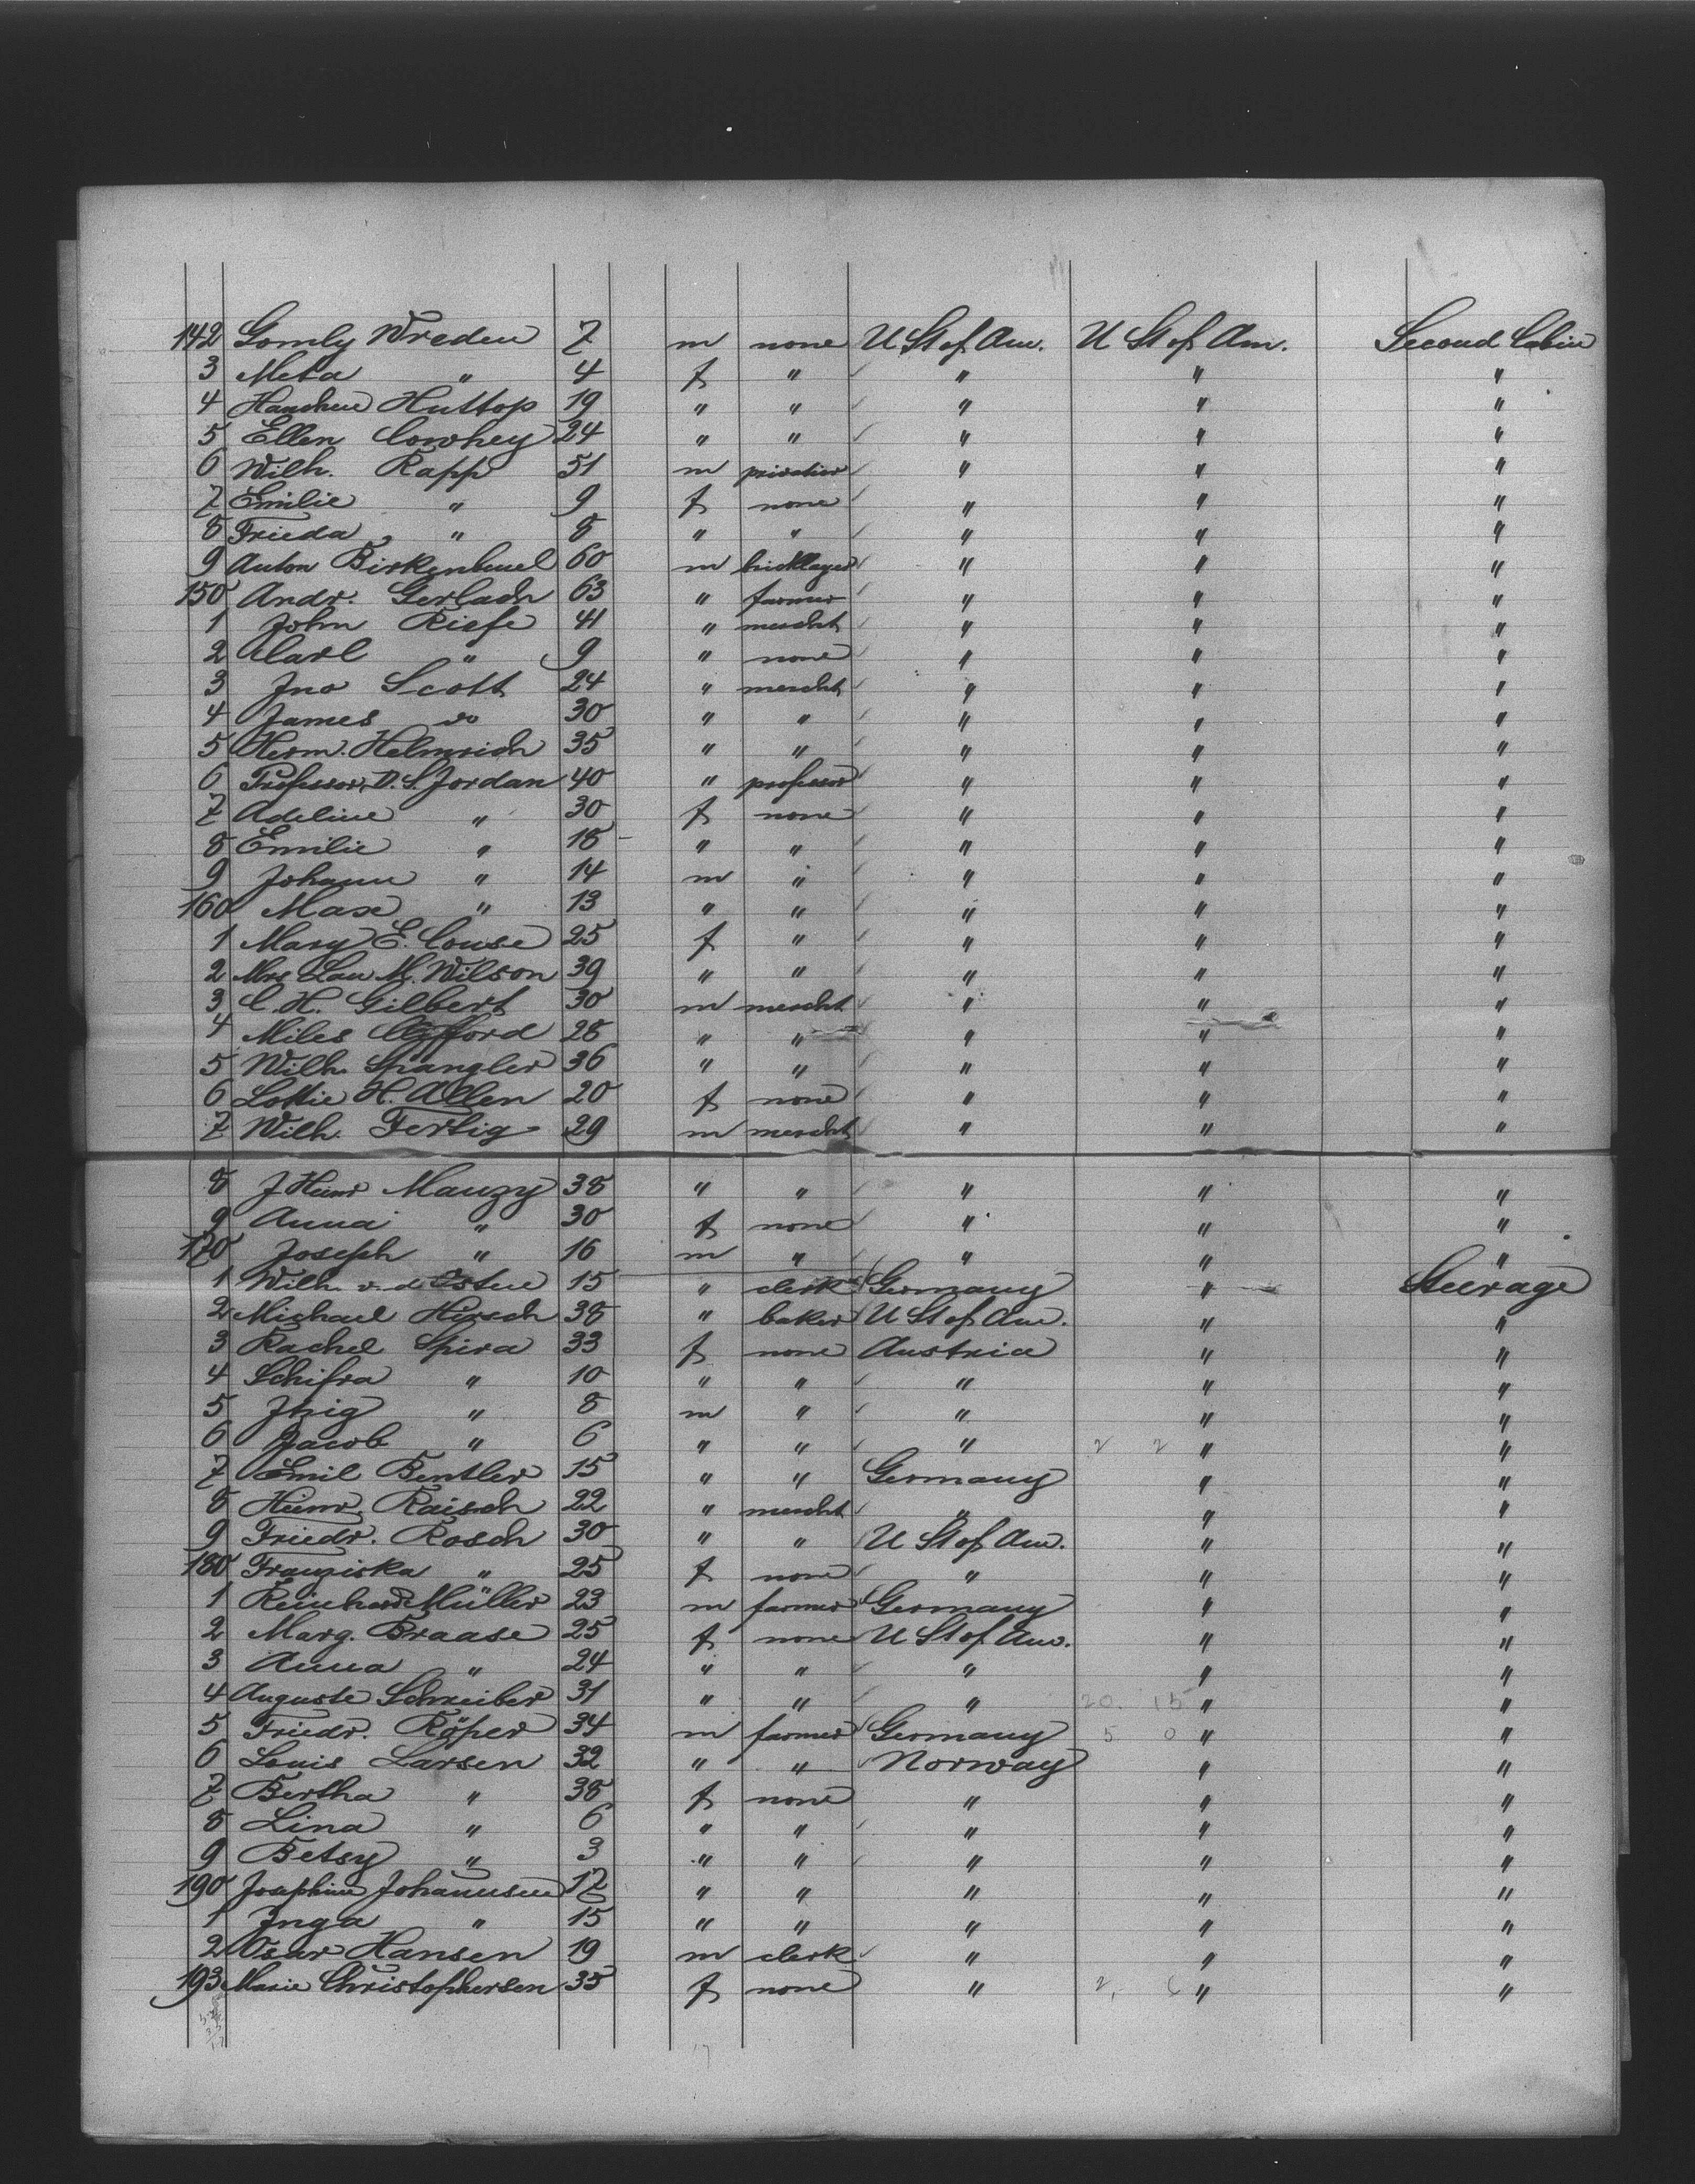 142 Gomly Wreden 7 m none U St of Am. U St of Am. Second Cabin
3 Meta " 4 f " " " "
4 Hanchen Huttop 19 " " " " "
5 Ellen Cowhey 24 " " " " "
6 Wilh. Rapp 51 m privatier " " "
7 Emilie " 9 f none " " "
8 Frieda " 8 " " " " "
9 Anton Birkenbeuel 60 m bricklayer " " "
150 Andr. Gerlach 63 " farmer " " "
1 John Riefe 41 " mercht " " "
2 Carl " 9 " none " " "
3 Jno Scott 24 " mercht " " "
4 James do 30 " " " " "
5 Herm. Helmrich 35 " " " " "
6 Professor D. S. Jordan 40 " professor " " "
7 Adeline " 30 f none " " "
8 Emilie " 18 " " " " "
9 Johann " 14 m " " " "
160 Max " 13 " " " " "
1 Mary E. Couse 25 f " " " "
2 Mrs Lou M. Wilson 39 " " " " "
3 C. H. Gilbert 30 m mercht " " "
4 Miles Clifford 28 " " " " "
5 Wilh. Spangler 36 " " " " "
6 Lottie H. Allen 20 f none " " "
7 Wilh. Fertig 29 m mercht " " "
8 J Heinr Mauzy 38 " " " " "
9 Anna " 30 f none " " "
170 Joseph " 16 m " " " "
1 Wilh. v. d. Osten 15 " clerk Germany " Steerage
2 Michael Hirsch 38 " baker U St of Am. " "
3 Rachel Spira 33 f none Austria " "
4 Schifra " 10 " " " " "
5 Jtzig " 8 m " " " "
6 Jacob " 6 " " " 2 2 " "
7 Emil Bentler 15 " " Germany " "
8 Heinr. Raisch 22 " mercht " " "
9 Friedr. Rosch 30 " " U St of Am. " "
180 Franziska " 25 f none " " "
1 Reinhard Müller 23 m farmer Germany " "
2 Marg. Braase 25 f none U St of Am. " "
3 Anna " 24 " " " " "
4 Auguste Schreiber 31 " " " 20. 15 " "
5 Friedr. Röper 34 m farmer Germany 5 0 " "
6 Louis Larsen 32 " " Norway " "
7 Bertha " 38 f none " " "
8 Lina " 6 " " " " "
9 Betsy " 3 " " " " "
190 Josephine Johannsen 17 " " " " "
1 Inga " 15 " " " " "
2 Oscar Hansen 19 m clerk " " "
193 Marie Christophersen 35 f none " 2, " "